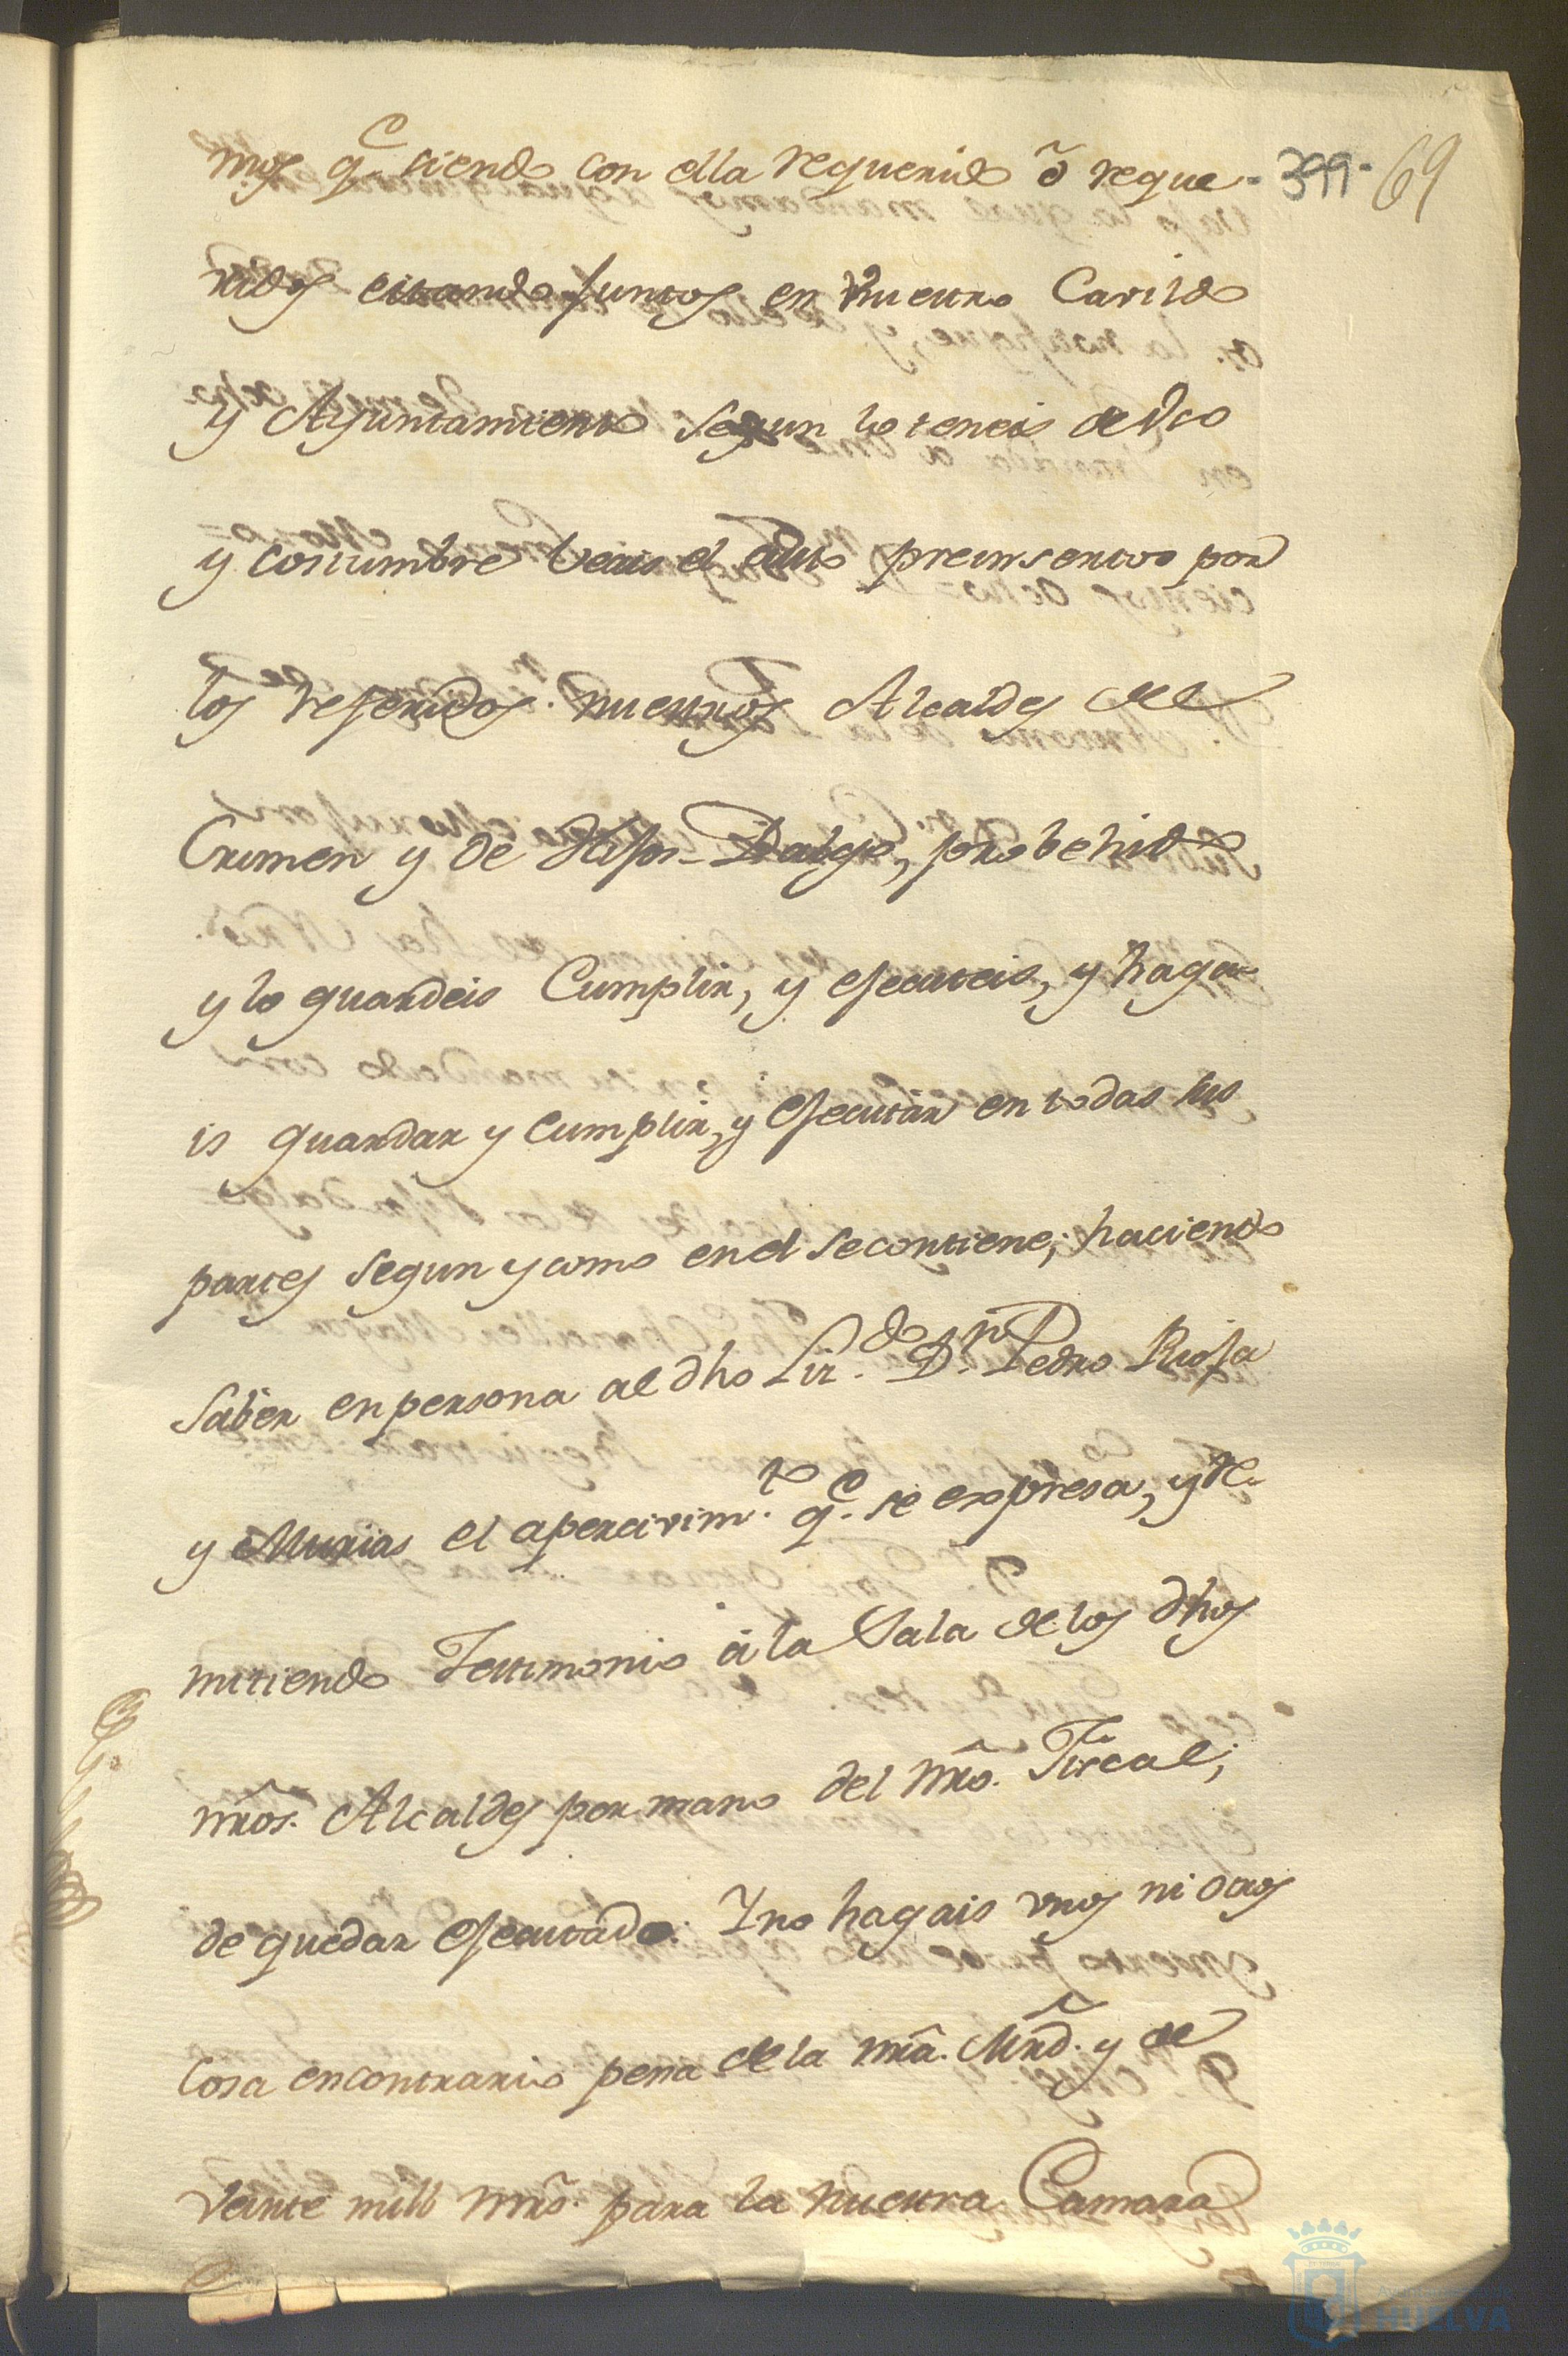 mos q.e siendo con ella requerido õ reque- 399- 69
ridos estando juntos en vuestro Cavildo
y Ayuntamiento segun lo teneis de vso
y costumbre veais el auto preinsertos por
los referidos nuestros Alcaldes del
Crimen y de Hijos-Dalgo, probehido
y lo guardeis Cumplir, y executeis, y haga-
is guardar y cumplir, y executar en todas sus
partes segun y como en el se contiene; haciendo
saber en persona al dho Liz.do D.n Pedro Rioja
y Murias el apercivim.to q.e se expresa, y re-
mitiendo Testimonio á la Sala de los dhos
nr̃os. Alcaldes por mano del nr̃o. Fiscal;
de quedar executado. Y no hagais vnos ni otros
cosa en contrario pena de la nr̃a. Mr̃d. y de
veinte mill mr̃s. para la nuestra Camara
HUELVA